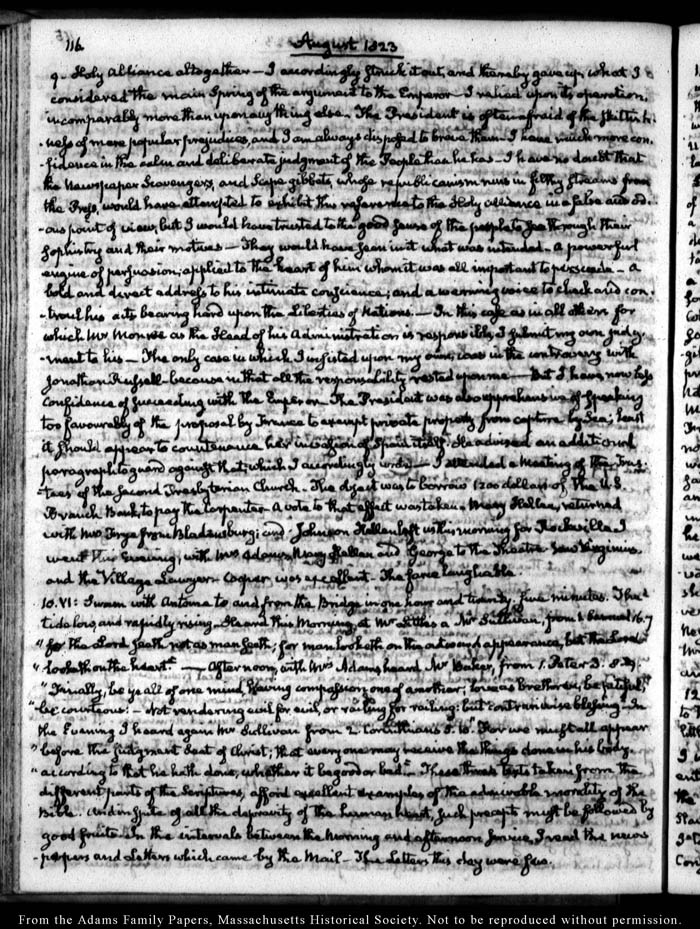 116
August 1823
9- Holy Alliance altogether — I accordingly struck it out, and thereby gave up what I
considered the main Spring of the argument to the Emperor — I relied upon its operation,
incomparably more than upon any thing else. The President is often afraid of the skittish-
-ness of mere popular prejudices, and I am always disposed to brave them — I have much more con-
-fidence in the calm and deliberate judgment of the People than he has — I have no doubt that
the Newspaper Scavengers, and Scape-gibbets, whose republicanism runs in filthy streams from
the Press, would have attempted to exhibit this reference to the Holy alliance in a false and odi-
-ous point of view, but I would have trusted to the good sense of the people to see through their
sophistry and their motives — They would have seen in it what was intended — a powerful
engine of persuasion, applied to the heart of him whom it was all important to persuade — a
bold and direct address to his intimate conscience; and a warning voice to check and con-
-troul his acts bearing hard upon the Liberties of Nations. — In this case as in all others for
which Mr Monroe as the Head of his Administration is responsible, I submit my own judg-
-ment to his — The only case in which I insisted upon my own, was in the controversy with
Jonathan Russell — because in that all the responsibility rested upon me — But I have now less
Confidence of succeeding with the Emperor. The President was also apprehensive of speaking
too favourably of the proposal by France to exempt private property from capture by Sea; least
it should appear to countenance her invasion of Spain itself. He advised an additional
paragraph to guard against that; which I accordingly wrote — I attended a meeting of the Trus-
-tees of the Second Presbyterian Church. The object was to borrow 1200 dollars of the U.S.
Branch Bank to pay the Carpenter. A vote to that effect was taken. Mary Hellen, returned
with Mrs Frye from Bladensburg; and Johnson Hellen left us this morning for Rockville. I
went this Evening, with Mrs Adams, Mary Hellen and George to the Theatre. Saw Virginius,
and the Village Lawyer. Cooper was excellent — The farce laughable.
10. VI: I swam with Antoine to and from the Bridge in one hour and twenty five minutes. The
tide low, and rapidly rising — Heard this Morning, at Mr Little's a Mr Sullivan, from 1. Samuel 16.7
"for the Lord seeth not as man seeth; for man looketh on the outward appearance, but the Lord
"looketh on the heart." — Afternoon, with Mrs Adams heard Mr Baker, from 1. Peter 3. 8.9.
"Finally, be ye all of one mind, having compassion one of another; love as brethren, be pitiful,
"be courteous: — Not rendering evil for evil, or railing for railing: but contrariwise blessing — In
the Evening I heard again Mr Sullivan from 2. Corinthians 5. 10. "For we must all appear
"before the judgment Seat of Christ; that every one may receive the things done in his body,
"according to that he hath done, whether it be good or bad." — These three texts taken from the
different parts of the Scriptures, afford excellent examples of the admirable morality of the
Bible. And in spite of all the depravity of the human heart, such precepts must be followed by
good fruits — In the intervals between the Morning and afternoon Service, I read the news
-papers and Letters which came by the Mail — The Letters this day were few.
From the Adams Family Papers, Massachusetts Historical Society. Not to be reproduced without permission.